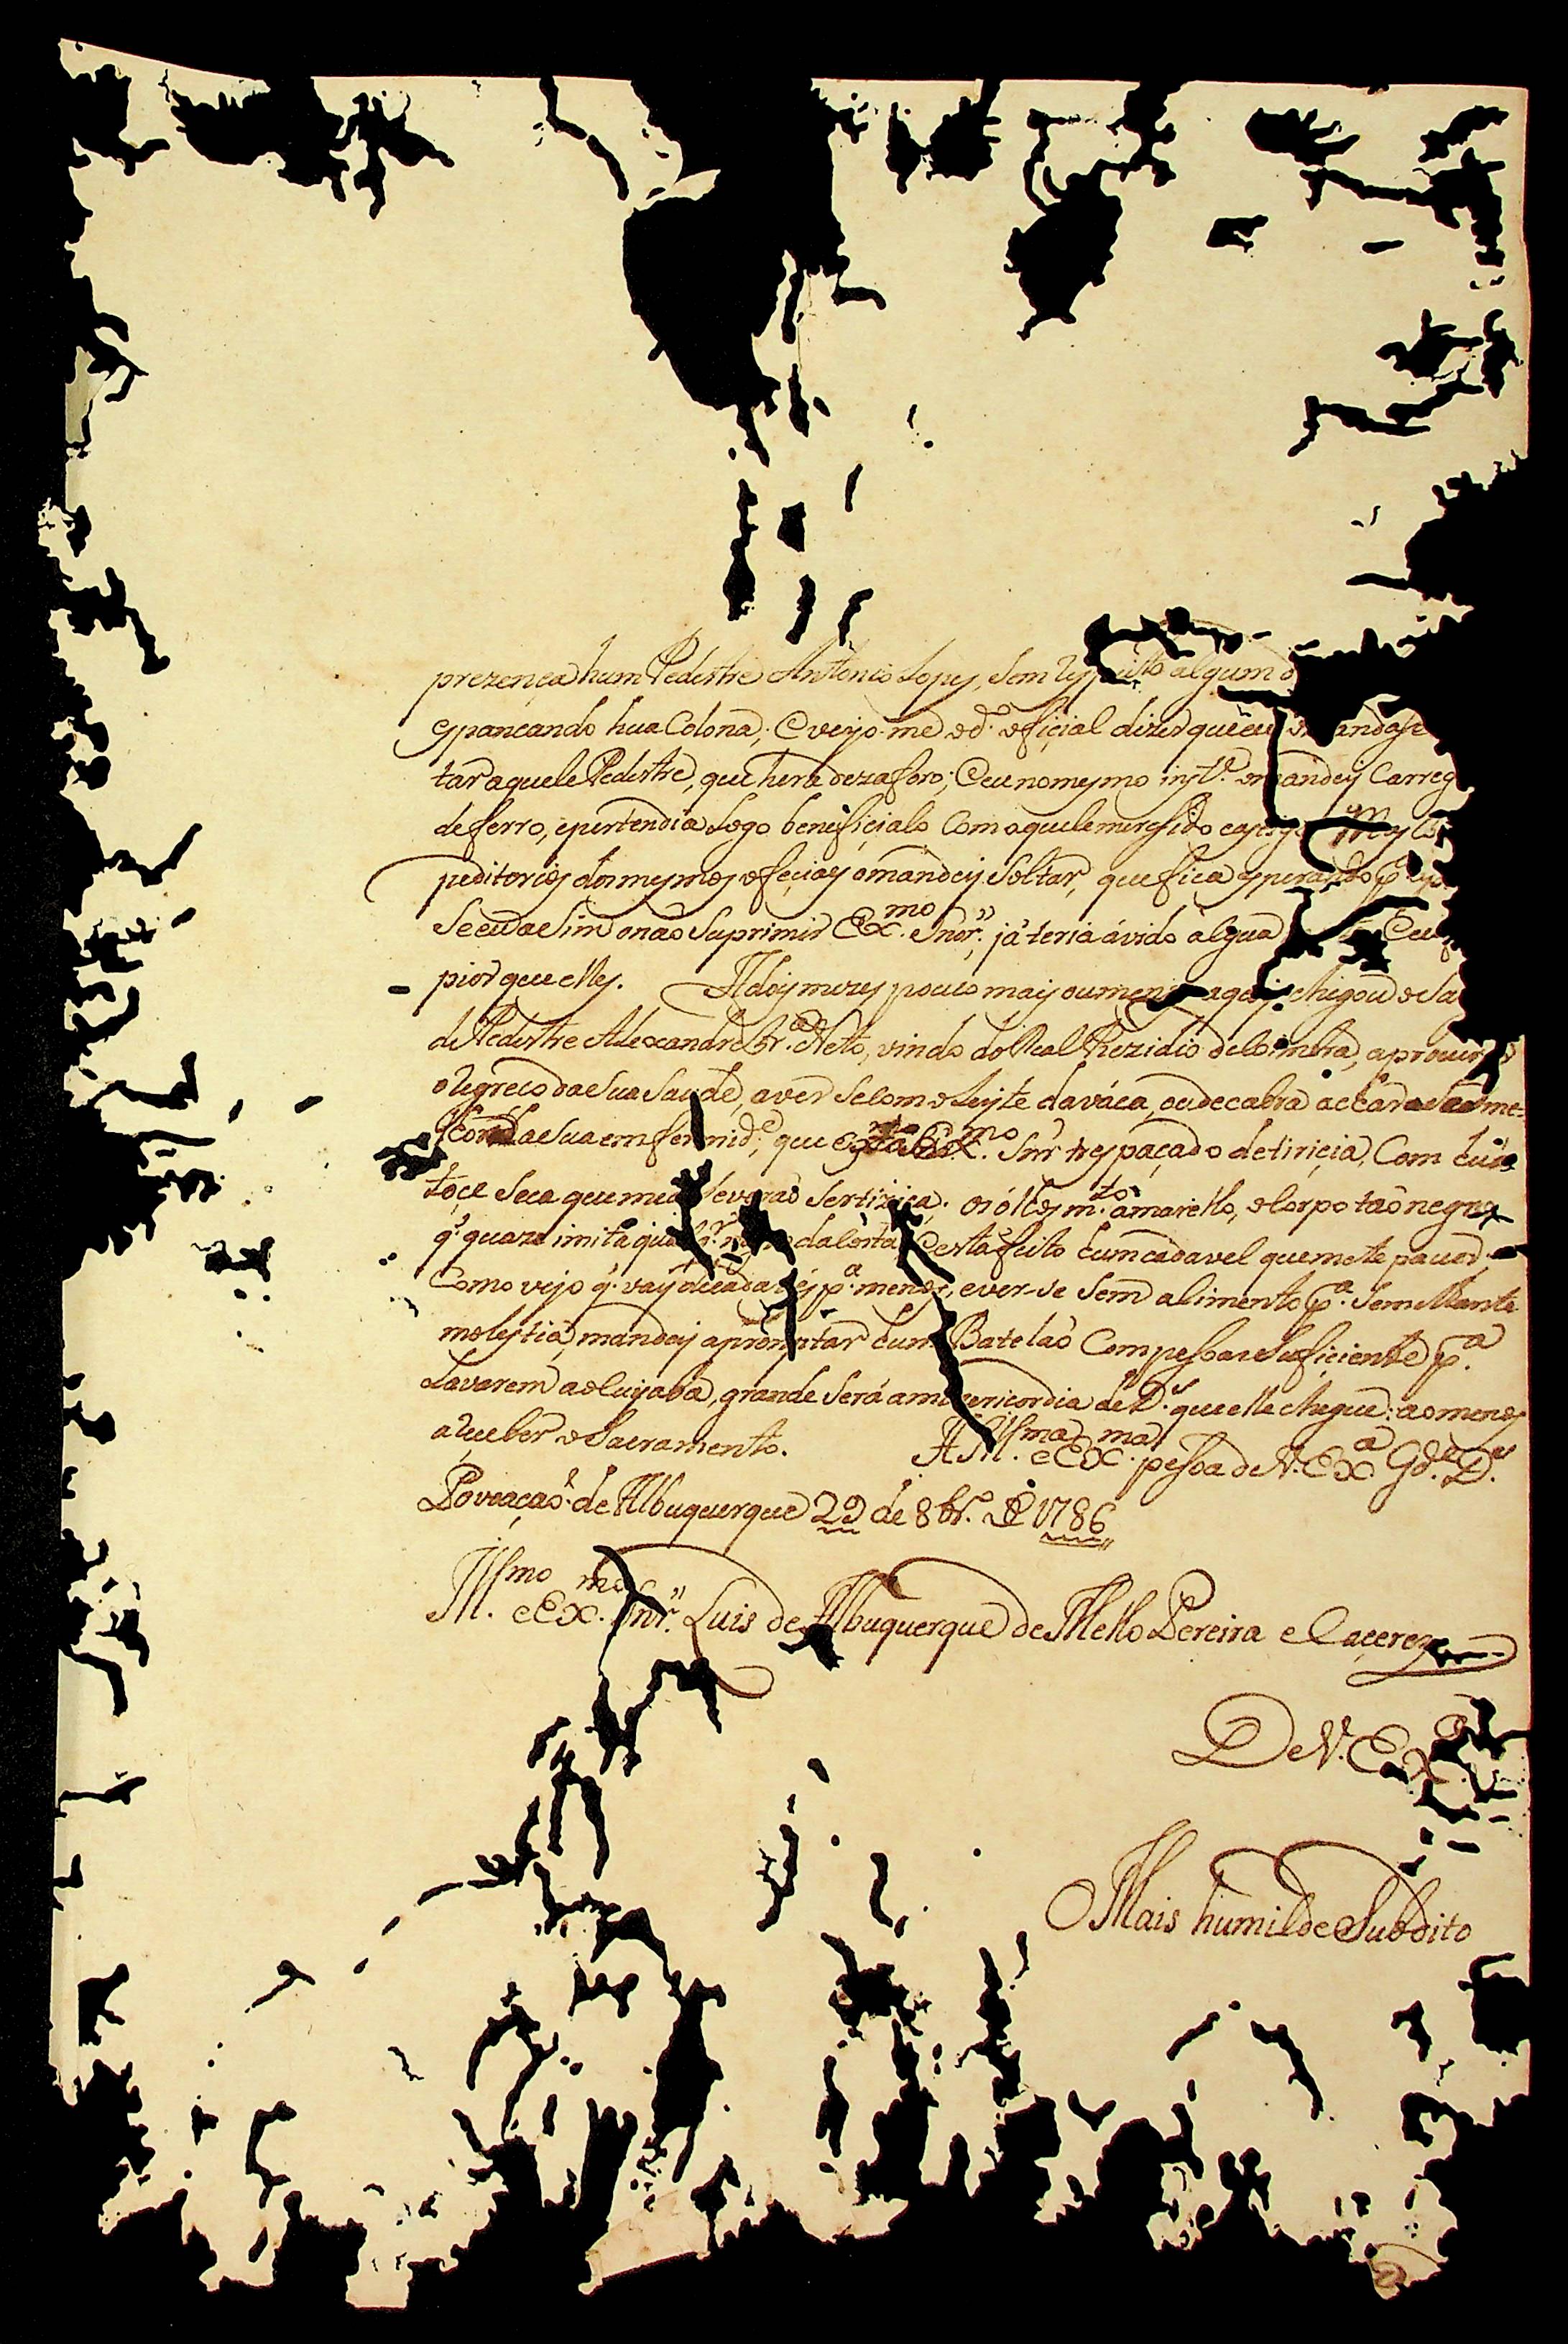 prezença hum Pedestre Antonio Lopes, sem algum
espancando hua Colona; e veyo-me o d.º oficial dizer que eu mandase
tar aquele Pedestre, que hera dezaforo; e eu no mesmo inst.e mandey Carreg
de ferro, e pertendia Logo beneficialo Com aquele meresido
peditorios dos mesmos ofeciaes o mandey Soltar, que fica esperando p.a
Se eu aSim o não Suprimir Ex.mo Snor.', já teria ávido algua Ceu
pior que elles. A dois mezes pouco mais ou menos aqui chegou o Sa
de Pedestre Alexandre Br.a Neto, vindo do Real Prezidio de Coimbra, a procurar
o regreco da Sua Saude, a ver Se Com o Leyte da váca, ou de cabra
a Sua emfermid.e, que está Ex.mo Snr trespaçado de tiricia, Com hua
toçe Seca que me Ser tizica; os ólhos m.to amarello, o Corpo tão negro
q.' quaze imita qual q.r da Costa, e está feito hum cadavel que mete pavor;
Como vejo q.' vay de cada vês p.a menos, e ver-se Sem alimento p.a Semilhante
molestia, mandey apromptar hum Batelão Com pessoas Suficiente p.a
Lavarem ao Cuyabá, grande Será a misericordia de D.s que elle chegue: ao menos
a receber o Sacramento. A Ill.ma e Ex.ma pessoa de V. Ex.a G.de D.s
Povoação de Albuquerque 29 de 8br.o de 1786
Ill.mo e Ex.mo Snr.' Luis de Albuquerque de Mello Pereira e Caçerez
De V. Ex.a
O Mais humilde Subdito